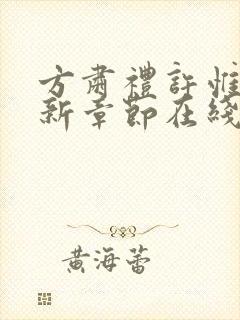 方肅禮許惟
新章節在綫
黃海蕾